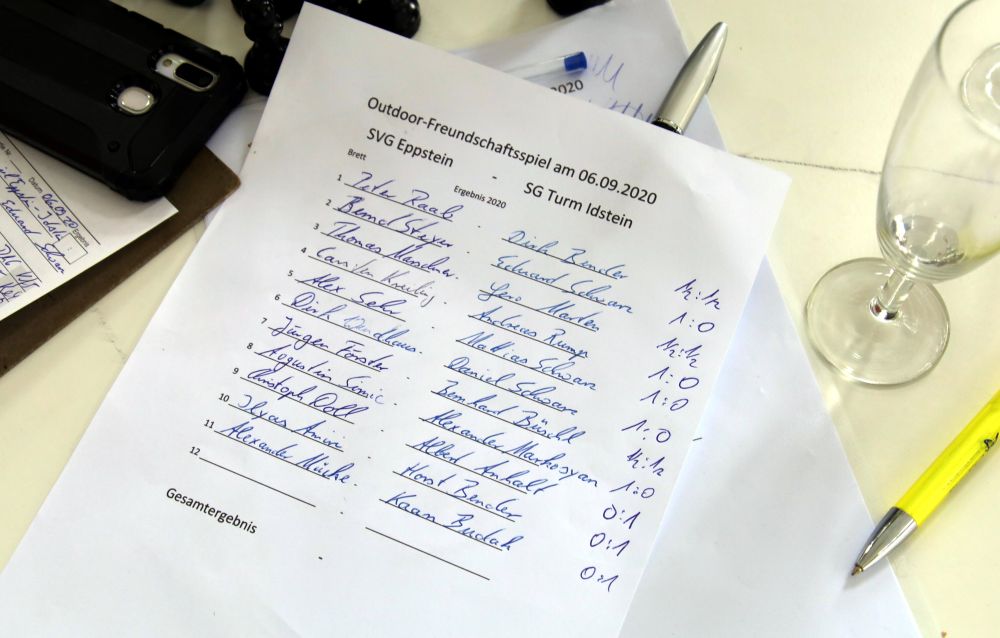 Outdoor-Freundschaftsspiel am 06.09.2020
SVG Eppstein - SG Turm Idstein
Brett Ergebnis 2020
1 Peter Raab - Dirk Bender ½:½
2 Bernd Steyer - Eduard Schwarz 1:0
3 Thomas - Jens Marten ½:½
4 Carsten - Andreas Rump 1:0
5 Alex Sehr - Mathias Schwarz 1:0
6 Dirk Wendhaus - Daniel Schwarz 1:0
7 Jürgen Förster - Bernhard Büschl ½:½
8 Augustin Simic - Alexander Markosyan 1:0
9 Christoph Doll - Albert Anhalt 0:1
10 Ilyas Amiri - Horst Bender 0:1
11 Alexander - Kaan Budak 0:1
12 -
Gesamtergebnis -
2020
Datum 06.09.20
Ergebnis